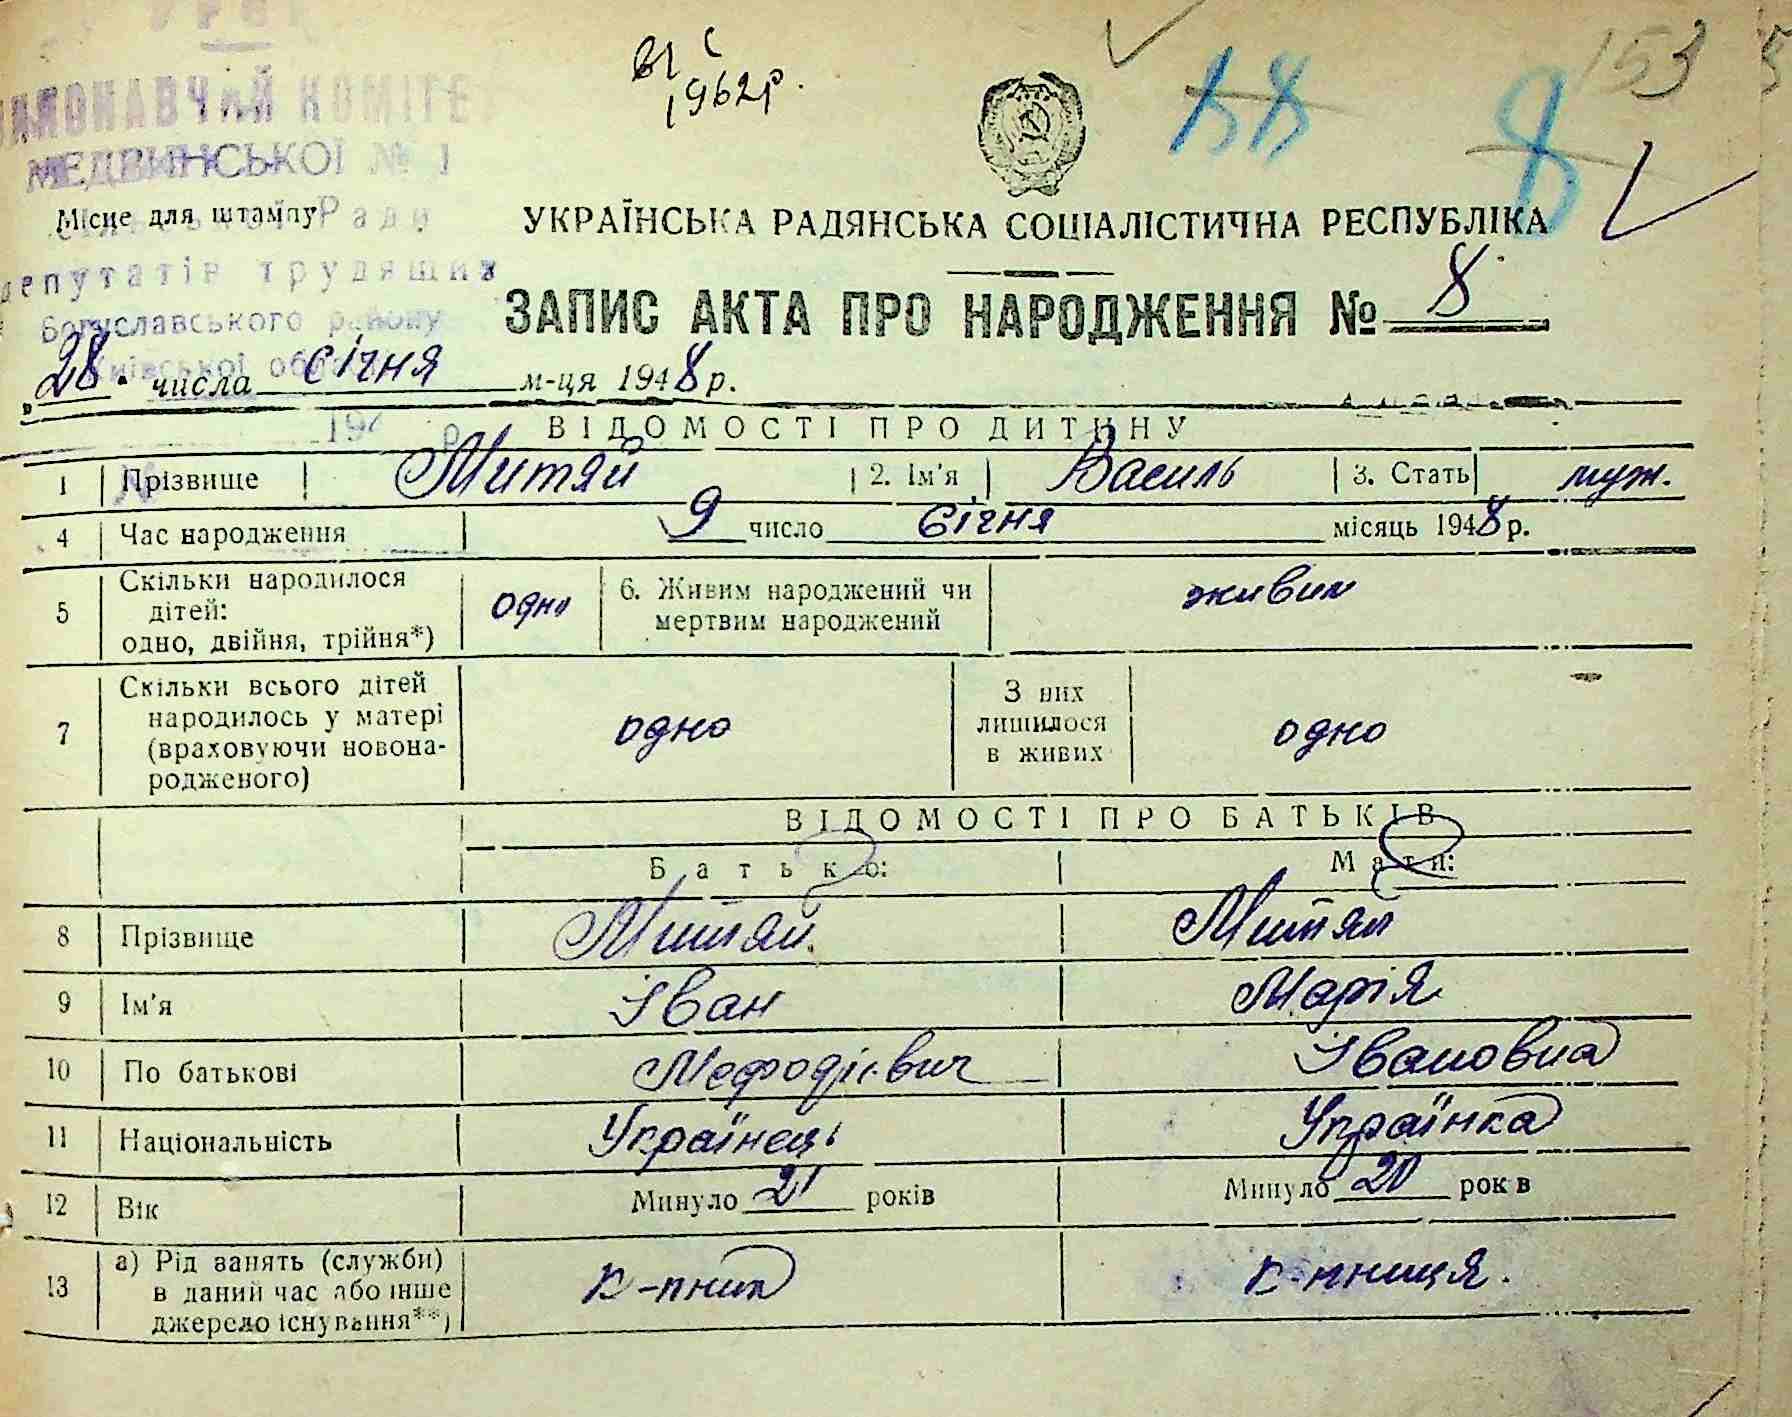 УРСР
ВИКОНАВЧИЙ КОМІТЕТ
МЕДВИНСЬКОЇ № 1
Сільської Ради
депутатів трудящих
Богуславського району
Київської області
194 р.
№
Місце для штампу
1962р.
88
8
153
УКРАЇНСЬКА РАДЯНСЬКА СОЦІАЛІСТИЧНА РЕСПУБЛІКА
ЗАПИС АКТА ПРО НАРОДЖЕННЯ № 8
„28" числа січня м-ця 1948 р.
ВІДОМОСТІ ПРО ДИТИНУ
1 Прізвище Митяй 2. Ім'я Василь 3. Стать муж.
4 Час народження 9 число Січня місяць 1948 р.
5 Скільки народилося дітей: одно, двійня, трійня*) одно 6. Живим народжений чи мертвим народжений живим
7 Скільки всього дітей народилось у матері (враховуючи новонародженого) одно З них лишилося в живих одно
ВІДОМОСТІ ПРО БАТЬКІВ
Батько: Мати:
8 Прізвище Митяй Митяй
9 Ім'я Іван Марія
10 По батькові Мефодієвич Івановна
11 Національність Українець Українка
12 Вік Минуло 21 років Минуло 20 років
13 а) Рід занять (служби) в даний час або інше джерело існування**) к-пник к-пниця.